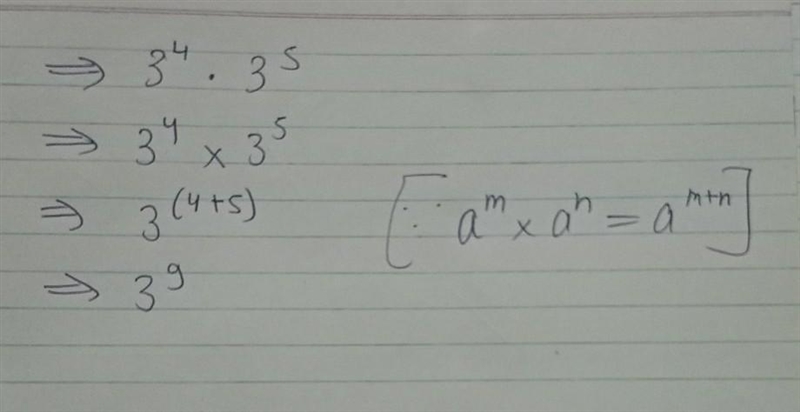 ⇒ 3⁴ · 3⁵
⇒ 3⁴ × 3⁵
⇒ 3⁽⁴⁺⁵⁾ [∵ aᵐ × aⁿ = aᵐ⁺ⁿ]
⇒ 3⁹